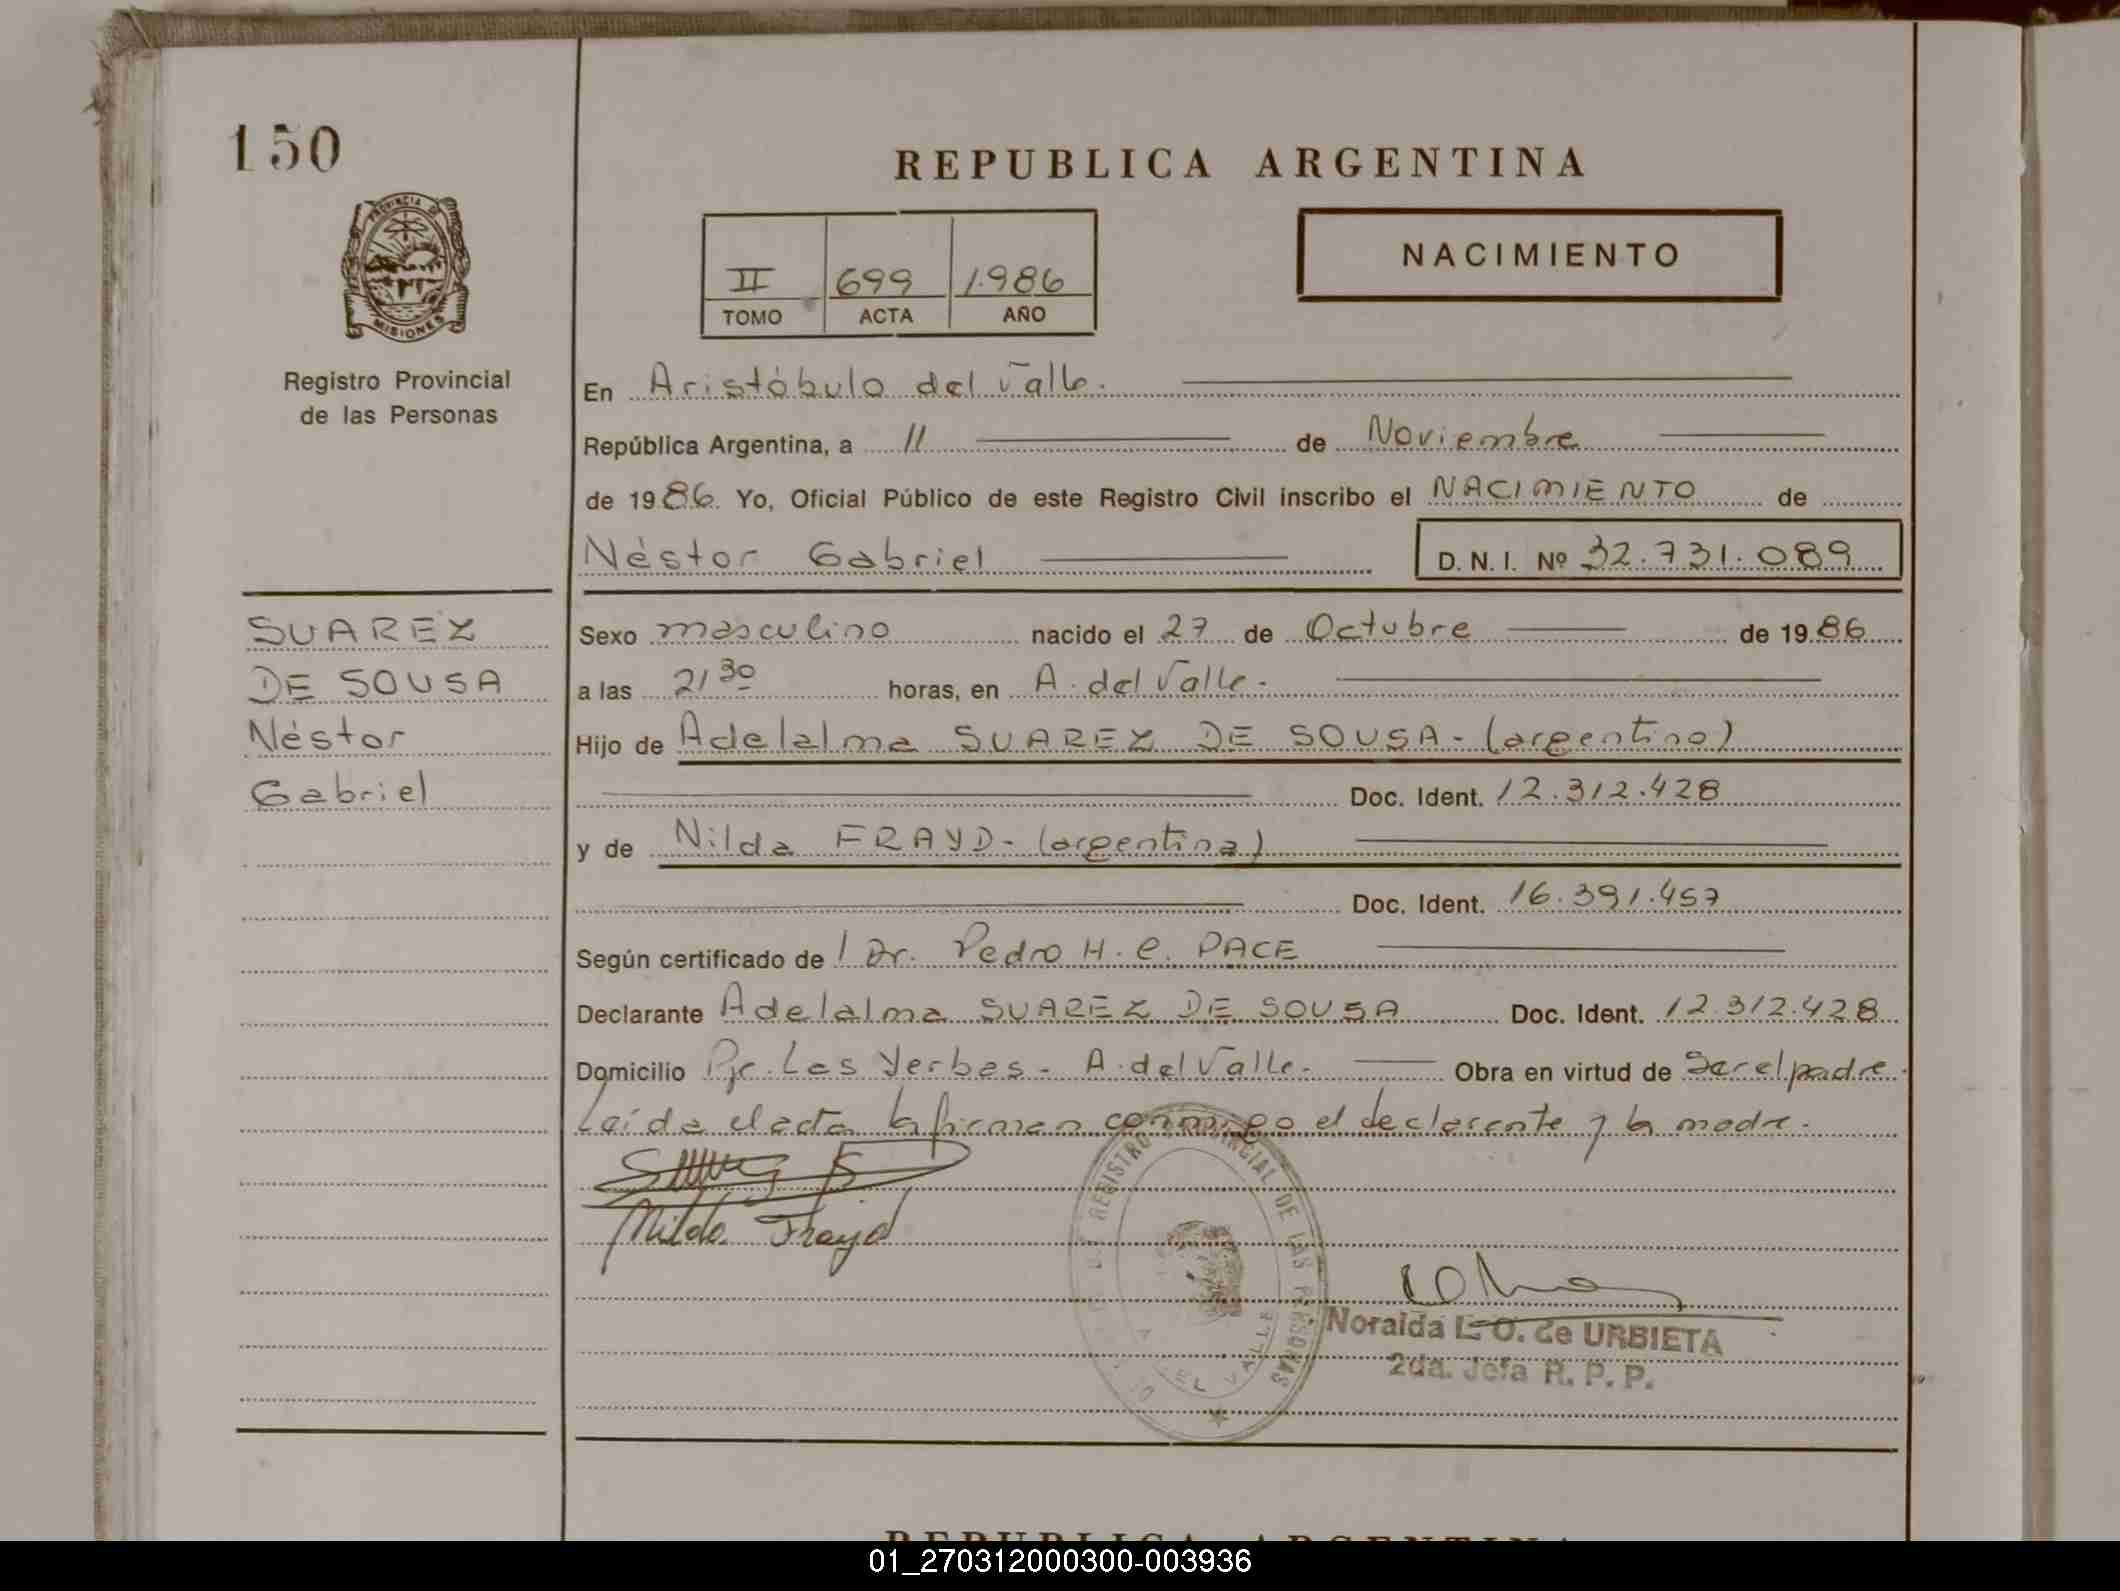 150
PROVINCIA DE
MISIONES
Registro Provincial
de las Personas
SUAREZ
DE SOUSA
Néstor
Gabriel
REPUBLICA ARGENTINA
II 699 1.986
TOMO ACTA AÑO
NACIMIENTO
En Aristóbulo del Valle.
República Argentina, a 11 de Noviembre
de 1986. Yo, Oficial Público de este Registro Civil inscribo el NACIMIENTO de
Néstor Gabriel D. N. I. Nº 32.731.089
Sexo masculino nacido el 27 de Octubre de 1986
a las 21 30 horas, en A. del Valle.
Hijo de Adelalma SUAREZ DE SOUSA - (argentino)
Doc. Ident. 12.312.428
y de Nilda FRAYD - (argentina)
Doc. Ident. 16.391.457
Según certificado de l Dr. Pedro H. C. PACE
Declarante Adelalma SUAREZ DE SOUSA Doc. Ident. 12.312.428
Domicilio Pje. Las Yerbas - A. del Valle. Obra en virtud de ser el padre.
Leída el acta la firman conmigo el declarante y la madre.
Nilda Frayd
REGISTRO PROVINCIAL DE LAS PERSONAS
DEL VALLE
Noralda L. O. de URBIETA
2da. Jefa R. P. P.
REPUBLICA ARGENTINA
01_270312000300-003936